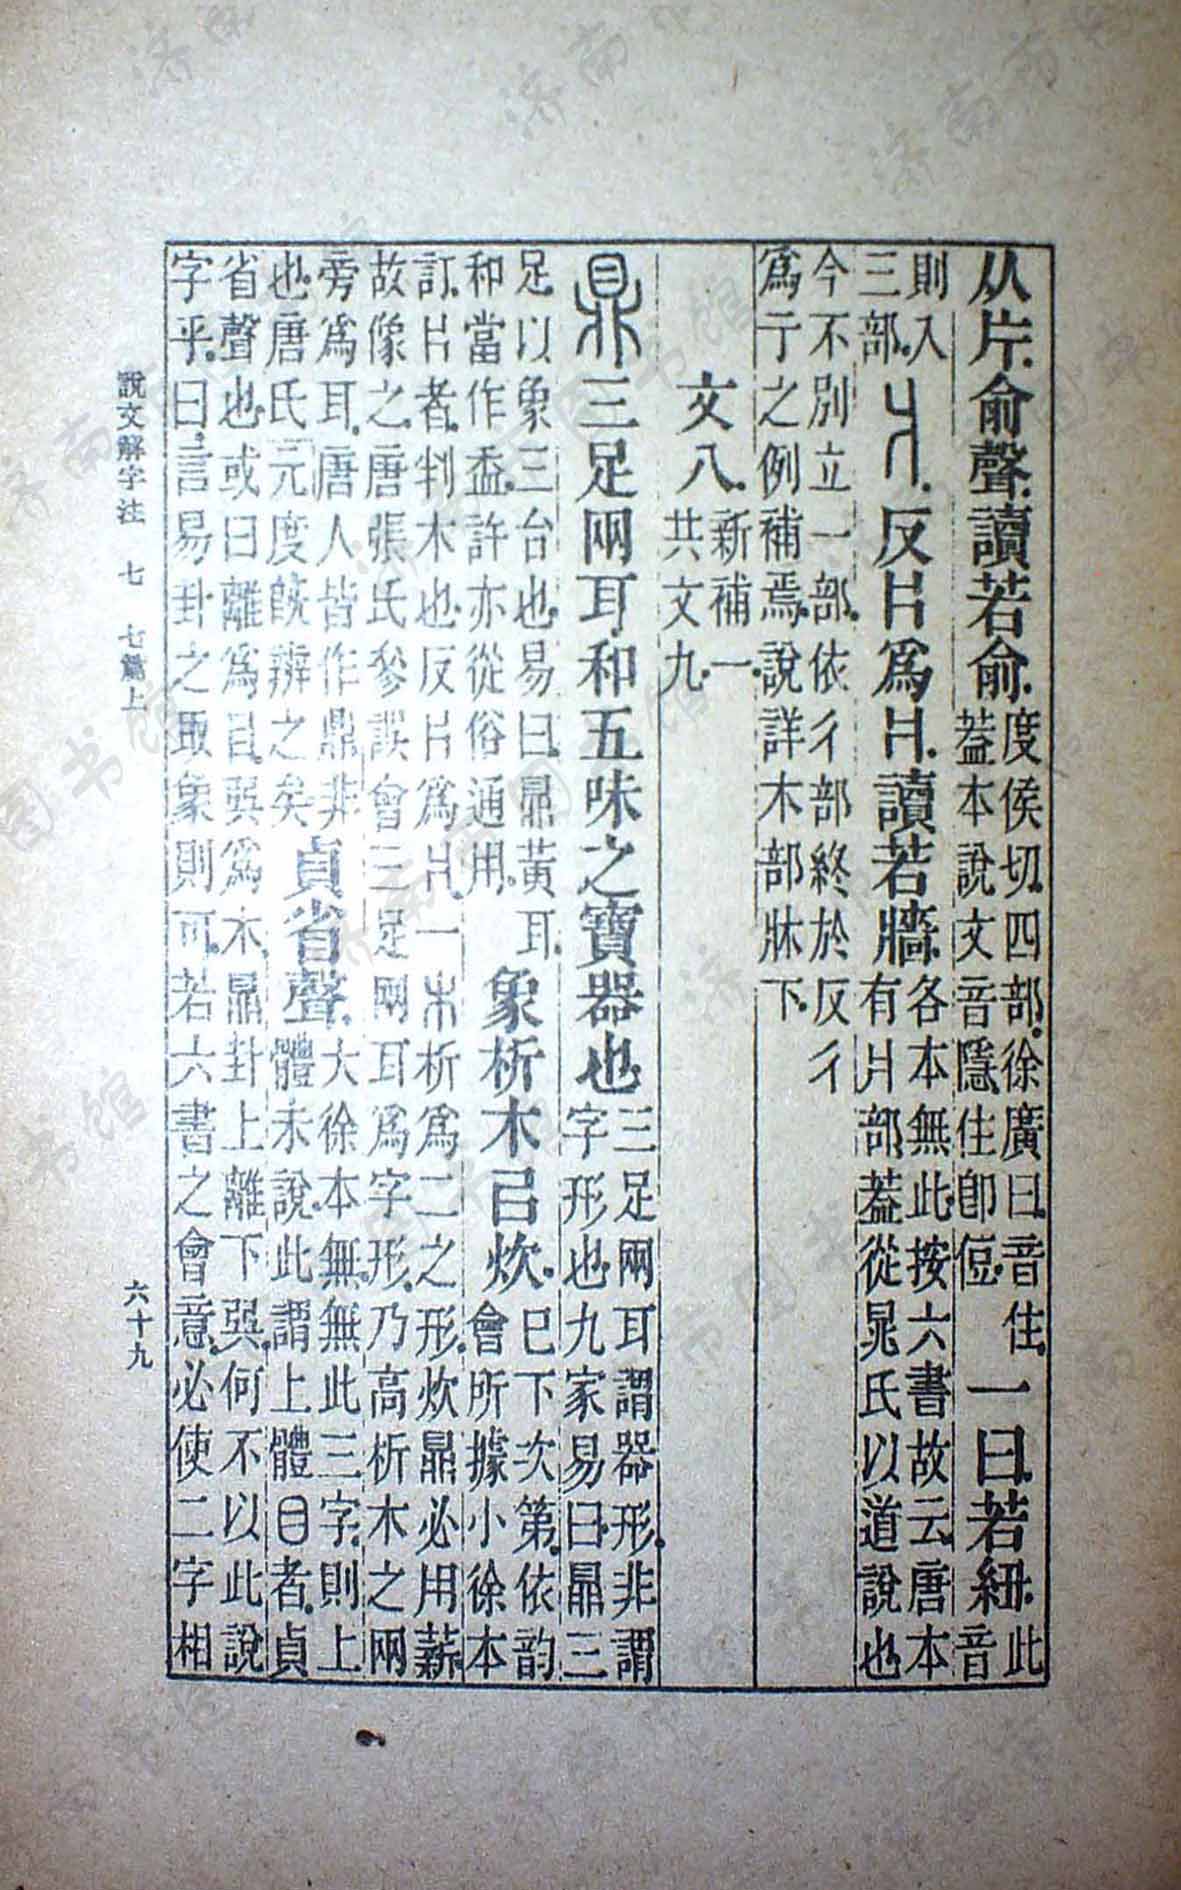 从片。俞聲。讀若俞。度侯切。四部。徐廣曰。音住。葢本說文音隱。住卽侸。一曰若紐。此音
則入三部。爿。反片爲爿。讀若牆。各本無此。按六書故云。唐本有爿部。葢從晁氏以道說也
今不別立一部。依彳部終於反彳
爲亍之例補焉。說詳木部牀下。
文八。新補一。共文九。
鼎三足兩耳。和五味之寶器也。三足兩耳謂器形。非謂字形也。九家易曰。鼎三
足以象三台也。易曰。鼎黃耳。和當作盉。許亦從俗通用。象析木㠯炊。巳下次第。依韵會所據小徐本
訂。片者。判木也。反片爲爿。一木析爲二之形。炊鼎必用薪。
故像之。唐張氏參誤會三足兩耳爲字形。乃高析木之兩
旁爲耳。唐人皆作鼎。非也。唐氏元度旣辨之矣。貞省聲。大徐本無。無此三字。則上體未說。此謂上體目者。貞
省聲也。或曰離爲目。巽爲木。鼎卦上離下巽。何不以此說
字乎。曰。言易卦之取象則可。若六書之會意。必使二字相
說文解字注 七 七篇上 六十九
济南市图书馆